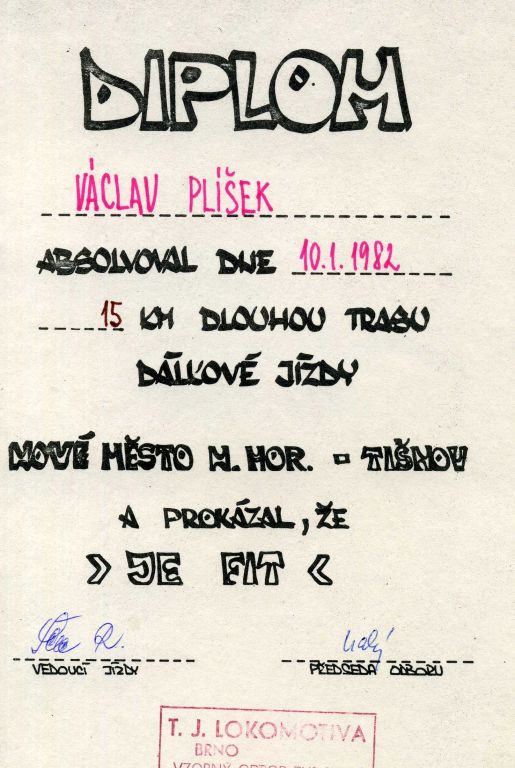 DIPLOM
VÁCLAV PLÍŠEK
ABSOLVOVAL DNE 10.1.1982
15 KM DLOUHOU TRASU
DÁLKOVÉ JÍZDY
NOVÉ MĚSTO N. HOR. - TIŠNOV
A PROKÁZAL, ŽE
» JE FIT «
VEDOUCÍ JÍZDY PŘEDSEDA ODBORU
T. J. LOKOMOTIVA
BRNO
VZORNÝ ODBOR